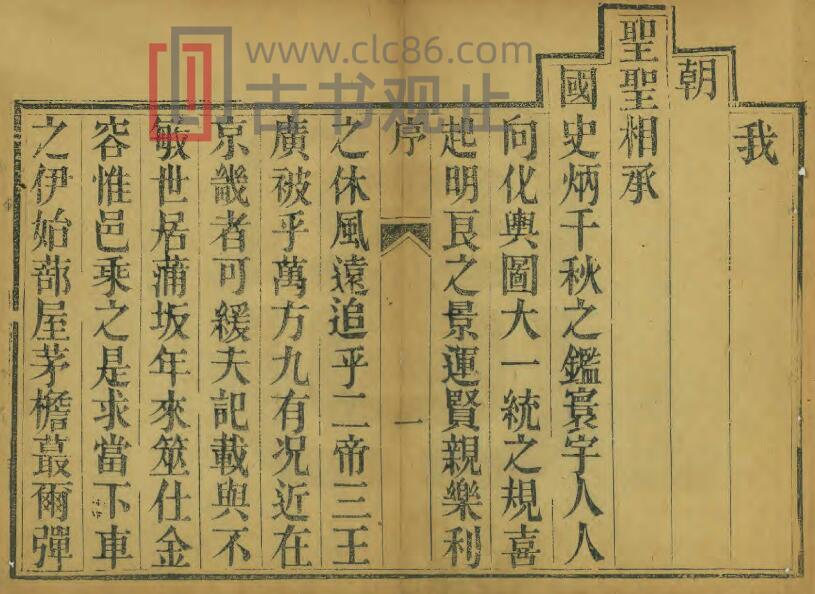 我
朝
聖聖相承
國史炳千秋之鑑寰宇人人
向化輿圖大一統之規喜
起明良之景運賢親樂利
序
一
之休風遠追乎二帝三王
廣被乎萬方九有况近在
京畿者可緩夫記載與不
敏世居蒲坂年來筮仕金
容惟邑乘之是求當下車
之伊始蔀屋茅檐蕞爾彈
www.clc86.com
古书观止